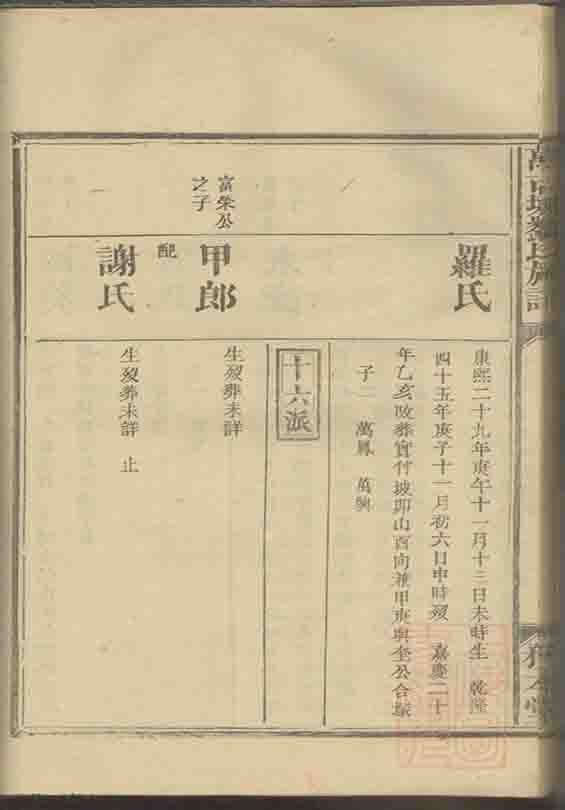 氏族譜
羅氏
康熙二十九年庚午十一月十三日未時生 乾隆
四十五年庚子十一月初六日申時歿 嘉慶二十
年乙亥改葬寶付坡卯山酉向兼甲庚與奎公合塚
子二 萬鳳 萬興
十六派
富榮公
之子
甲郎
生歿葬未詳
配
謝氏
生歿葬未詳 止